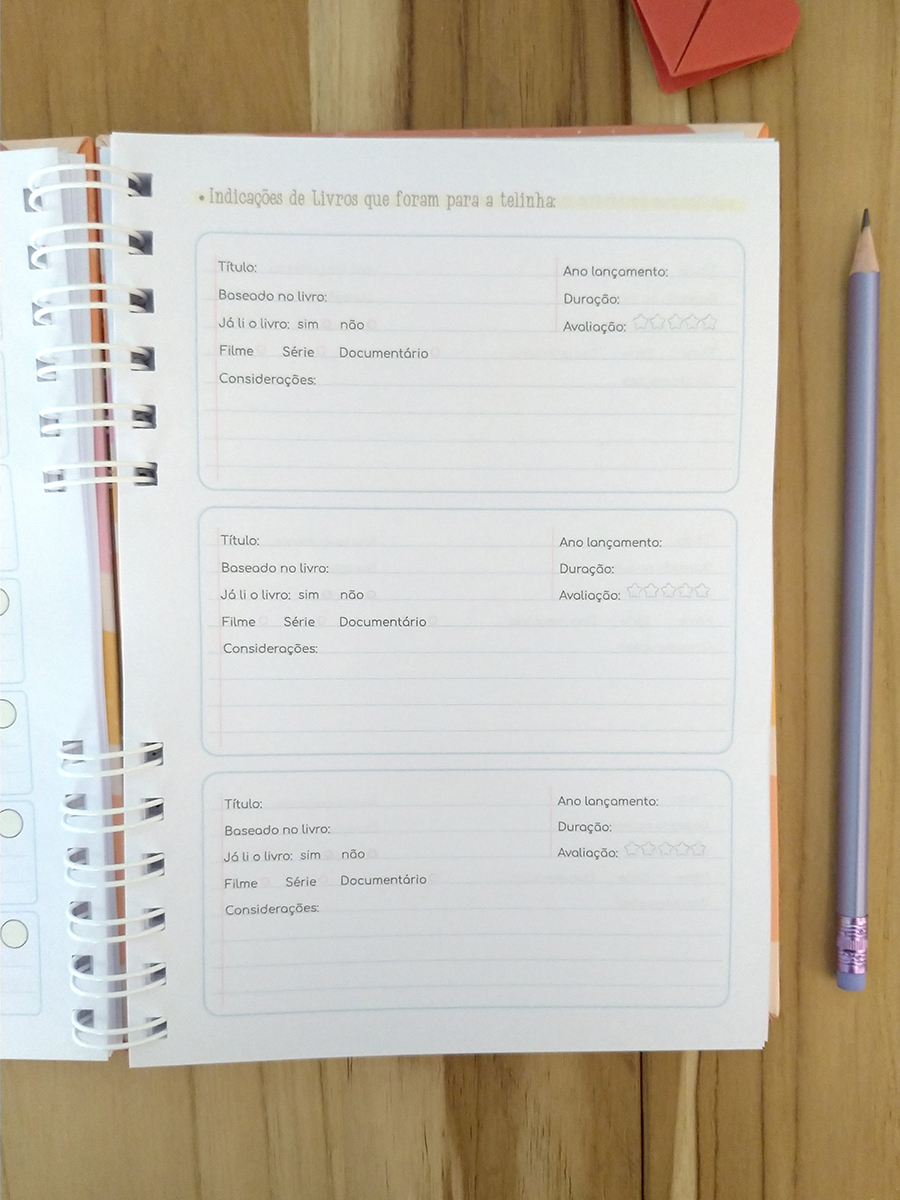 • Indicações de Livros que foram para a telinha:
Título:
Ano lançamento:
Baseado no livro:
Duração:
Já li o livro: sim não
Avaliação:
Filme Série Documentário
Considerações:
Título:
Ano lançamento:
Baseado no livro:
Duração:
Já li o livro: sim não
Avaliação:
Filme Série Documentário
Considerações:
Título:
Ano lançamento:
Baseado no livro:
Duração:
Já li o livro: sim não
Avaliação:
Filme Série Documentário
Considerações: